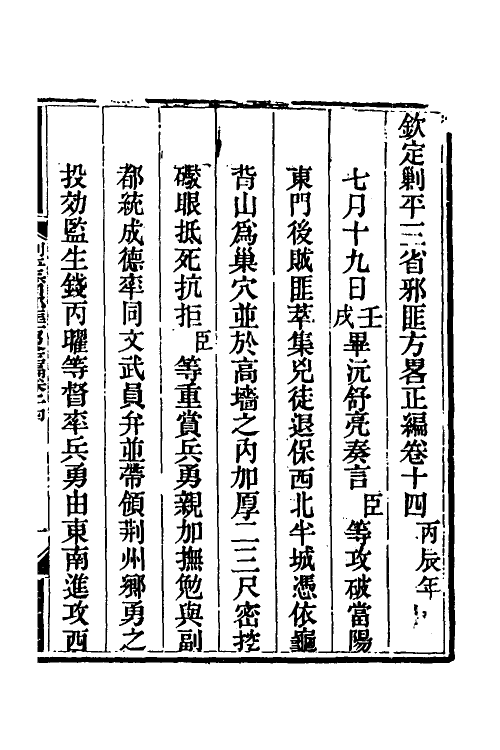 欽定剿平三省邪匪方畧正編卷十四 丙辰年
七月十九日壬戌畢沅舒亮奏言臣等攻破當陽
東門後賊匪萃集兇徒退保西北半城憑依龜
背山為巢穴並於高墻之內加厚二三尺密挖
礮眼抵死抗拒臣等重賞兵勇親加撫勉與副
都統成德率同文武員弁並帶領荆州鄉勇之
投効監生錢丙曜等督率兵勇由東南進攻西